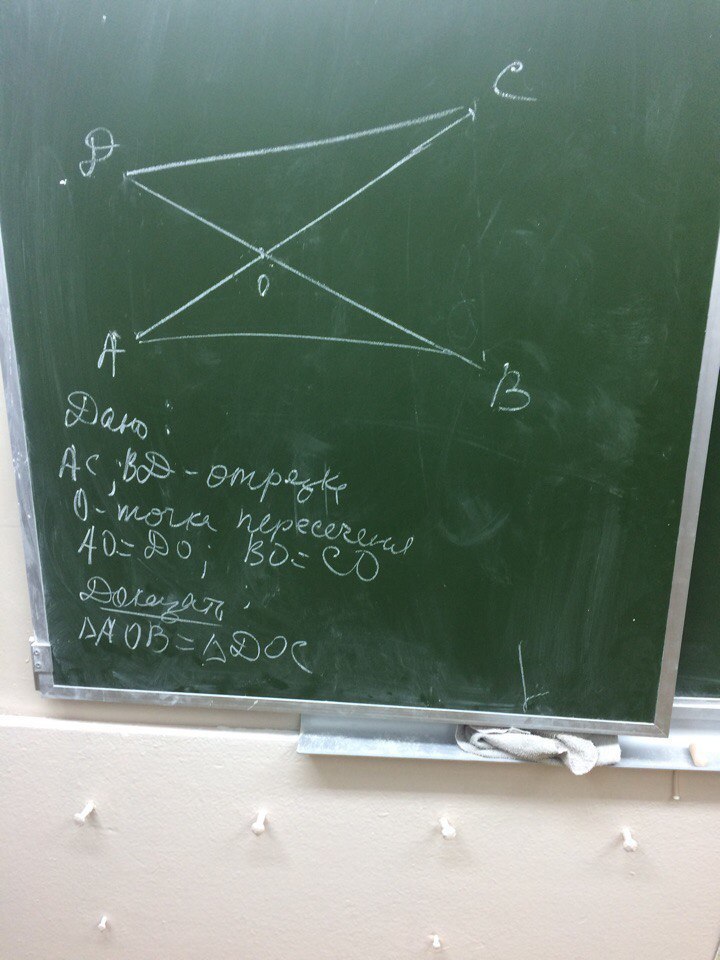 C
D
O
A
B
Дано:
AC; BD - отрезки
O - точка пересечения
AO = DO; BO = CO
Доказать:
△AOB = △DOC